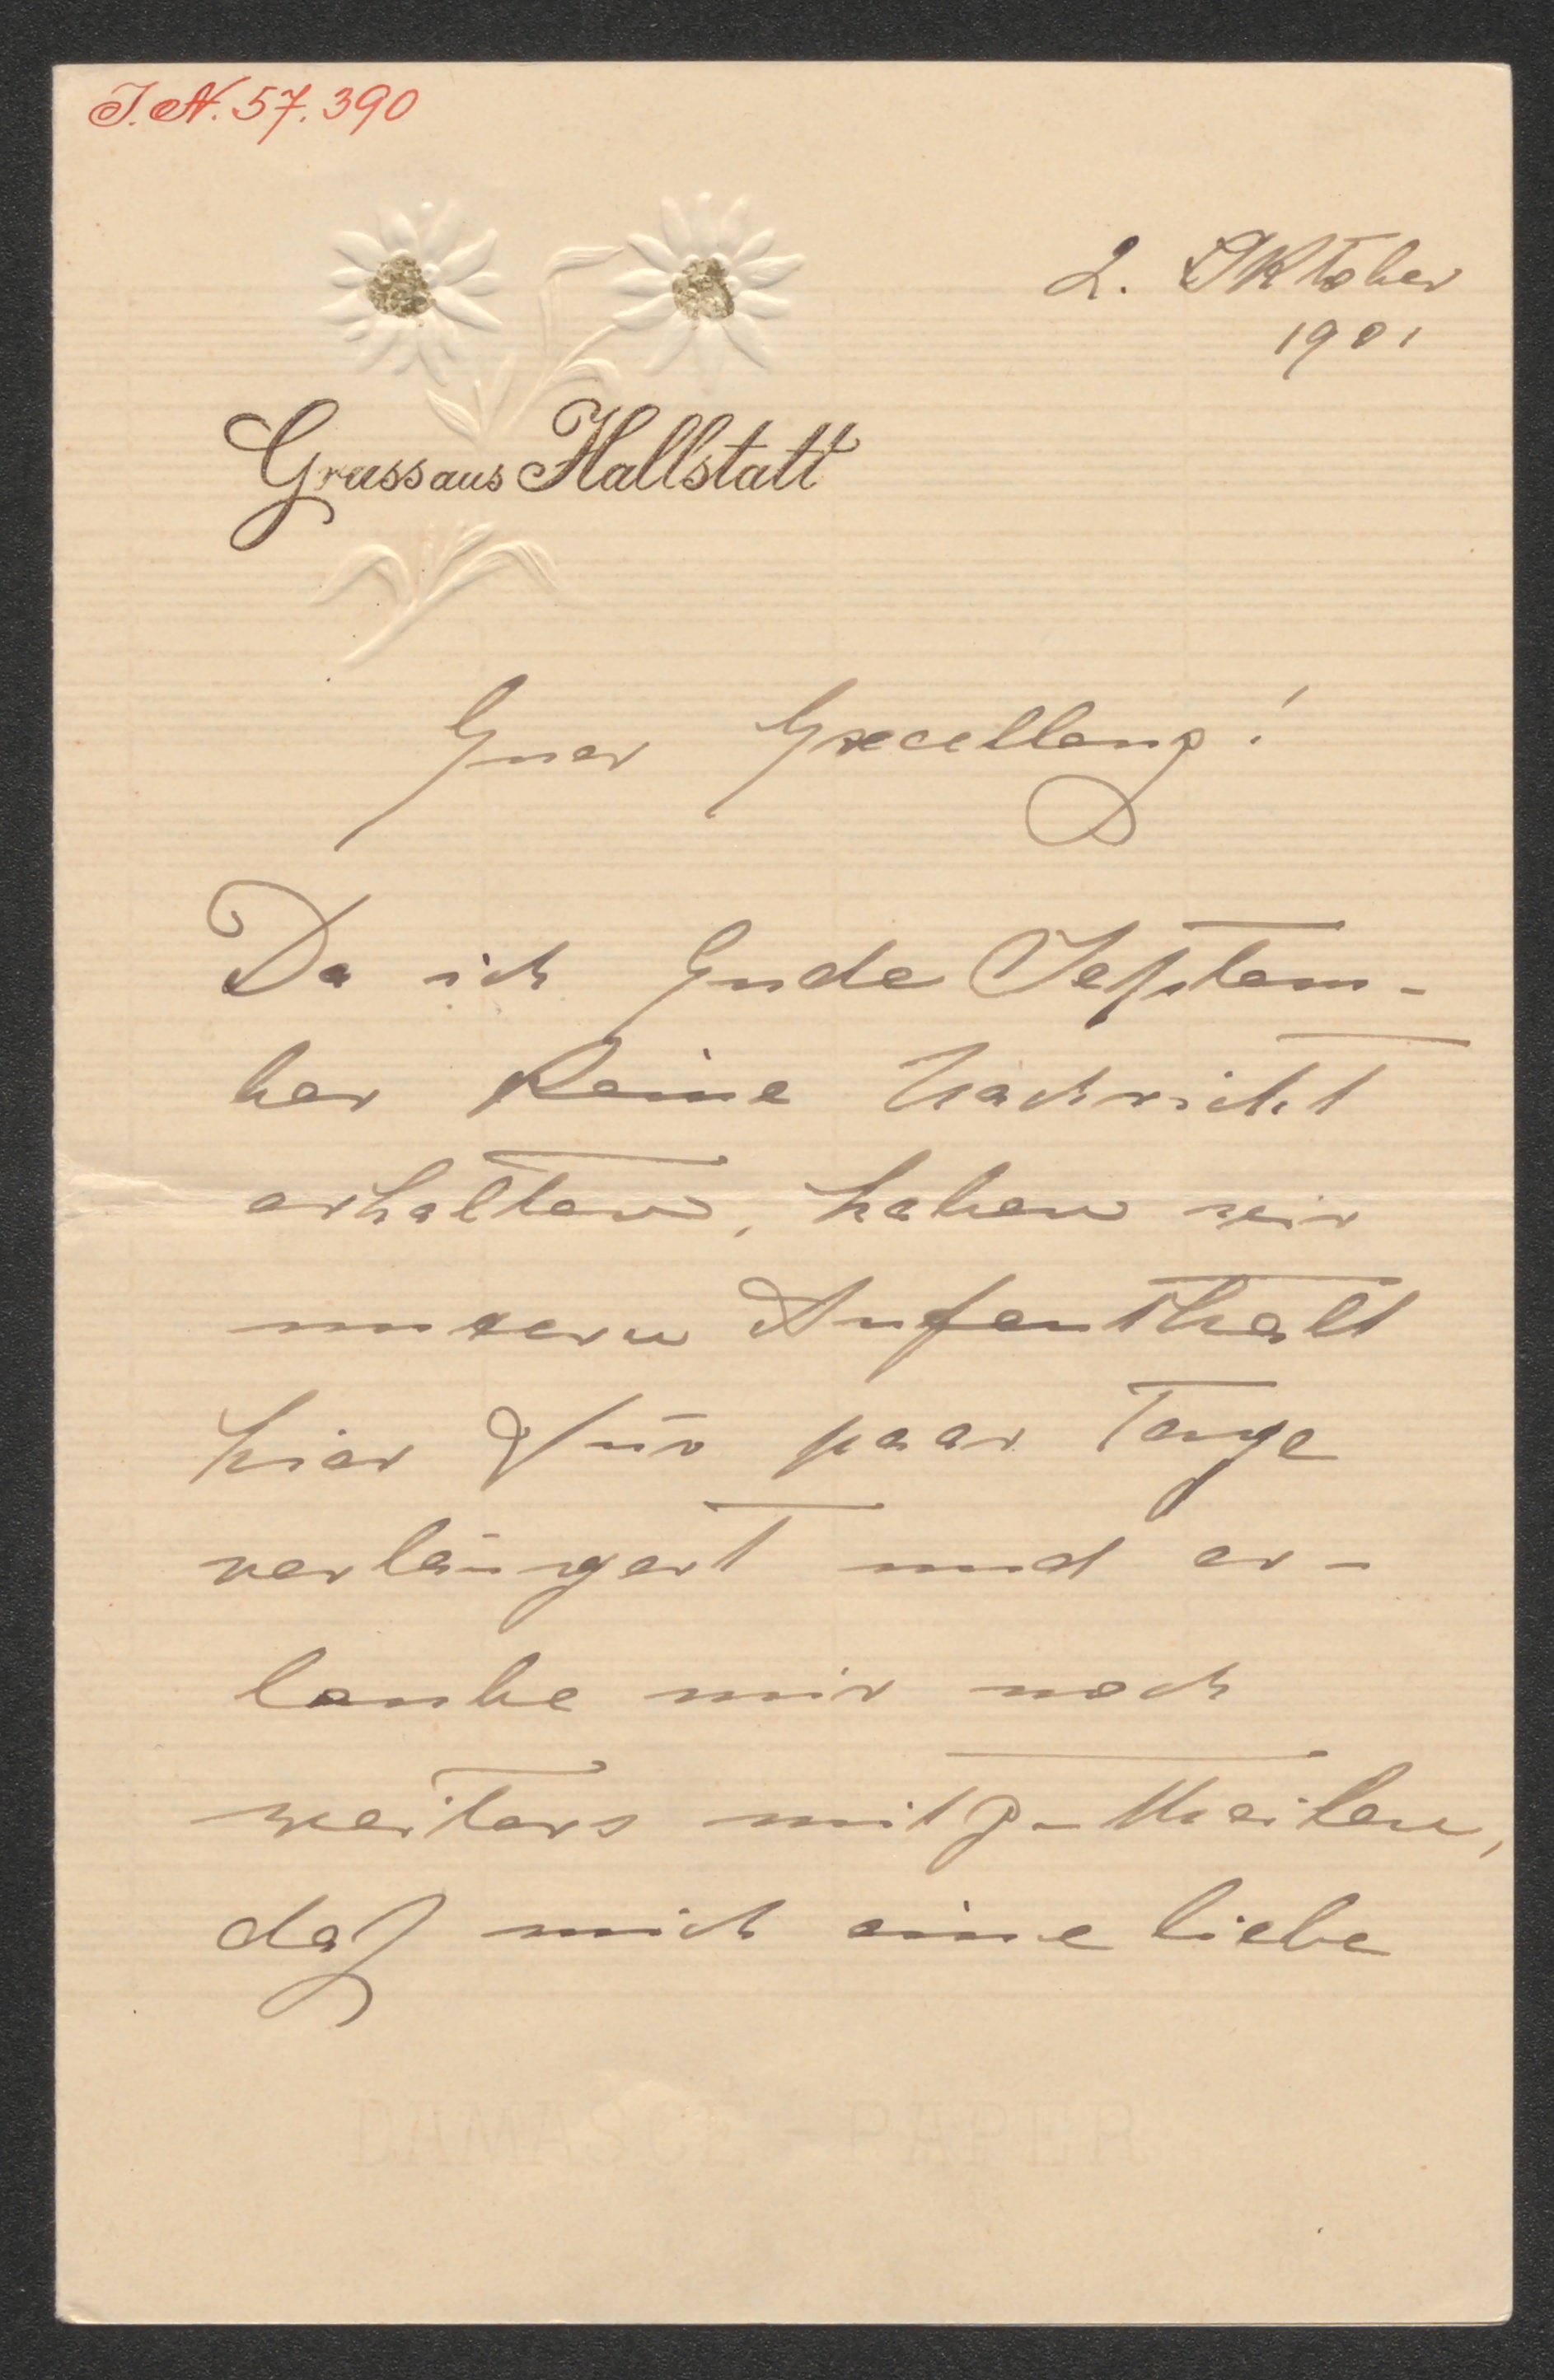 I.N. 57.390
2. Oktober
1901
Gruss aus Hallstatt
Euer Excellenz!
Da ich Ende Septem-
ber keine Nachricht
erhalten, haben wir
unseren Aufenthalt
hier für paar Tage
verlängert und er-
laube mir noch
weiters mitzutheilen,
daß mich eine liebe
DAMASCE-PAPER